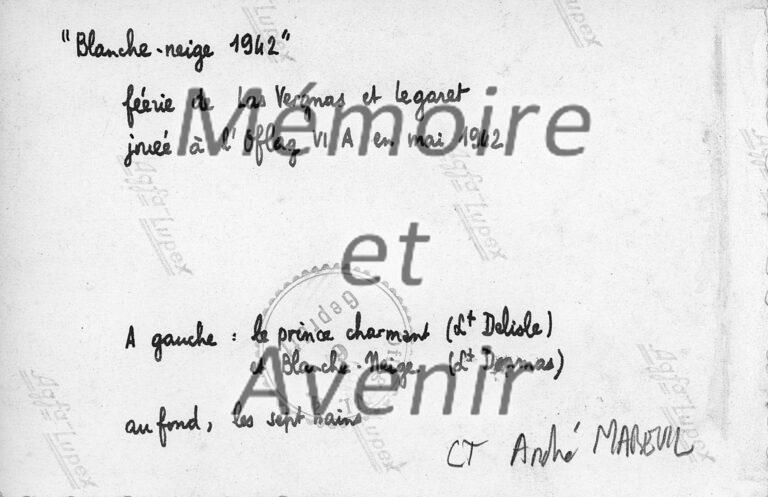 "Blanche-neige 1942"
féérie de Las Vergnas et Legaret
jouée à l'Oflag VI A en mai 1942
Mémoire
et
Avenir
A gauche : le prince charmant (Lt Delisle)
et Blanche-Neige (Lt Dammas)
au fond, les sept nains
CT André MAREUIL
Agfa Lupex
Agfa Lupex
Agfa Lupex
Agfa Lupex
Agfa Lupex
Geprüft